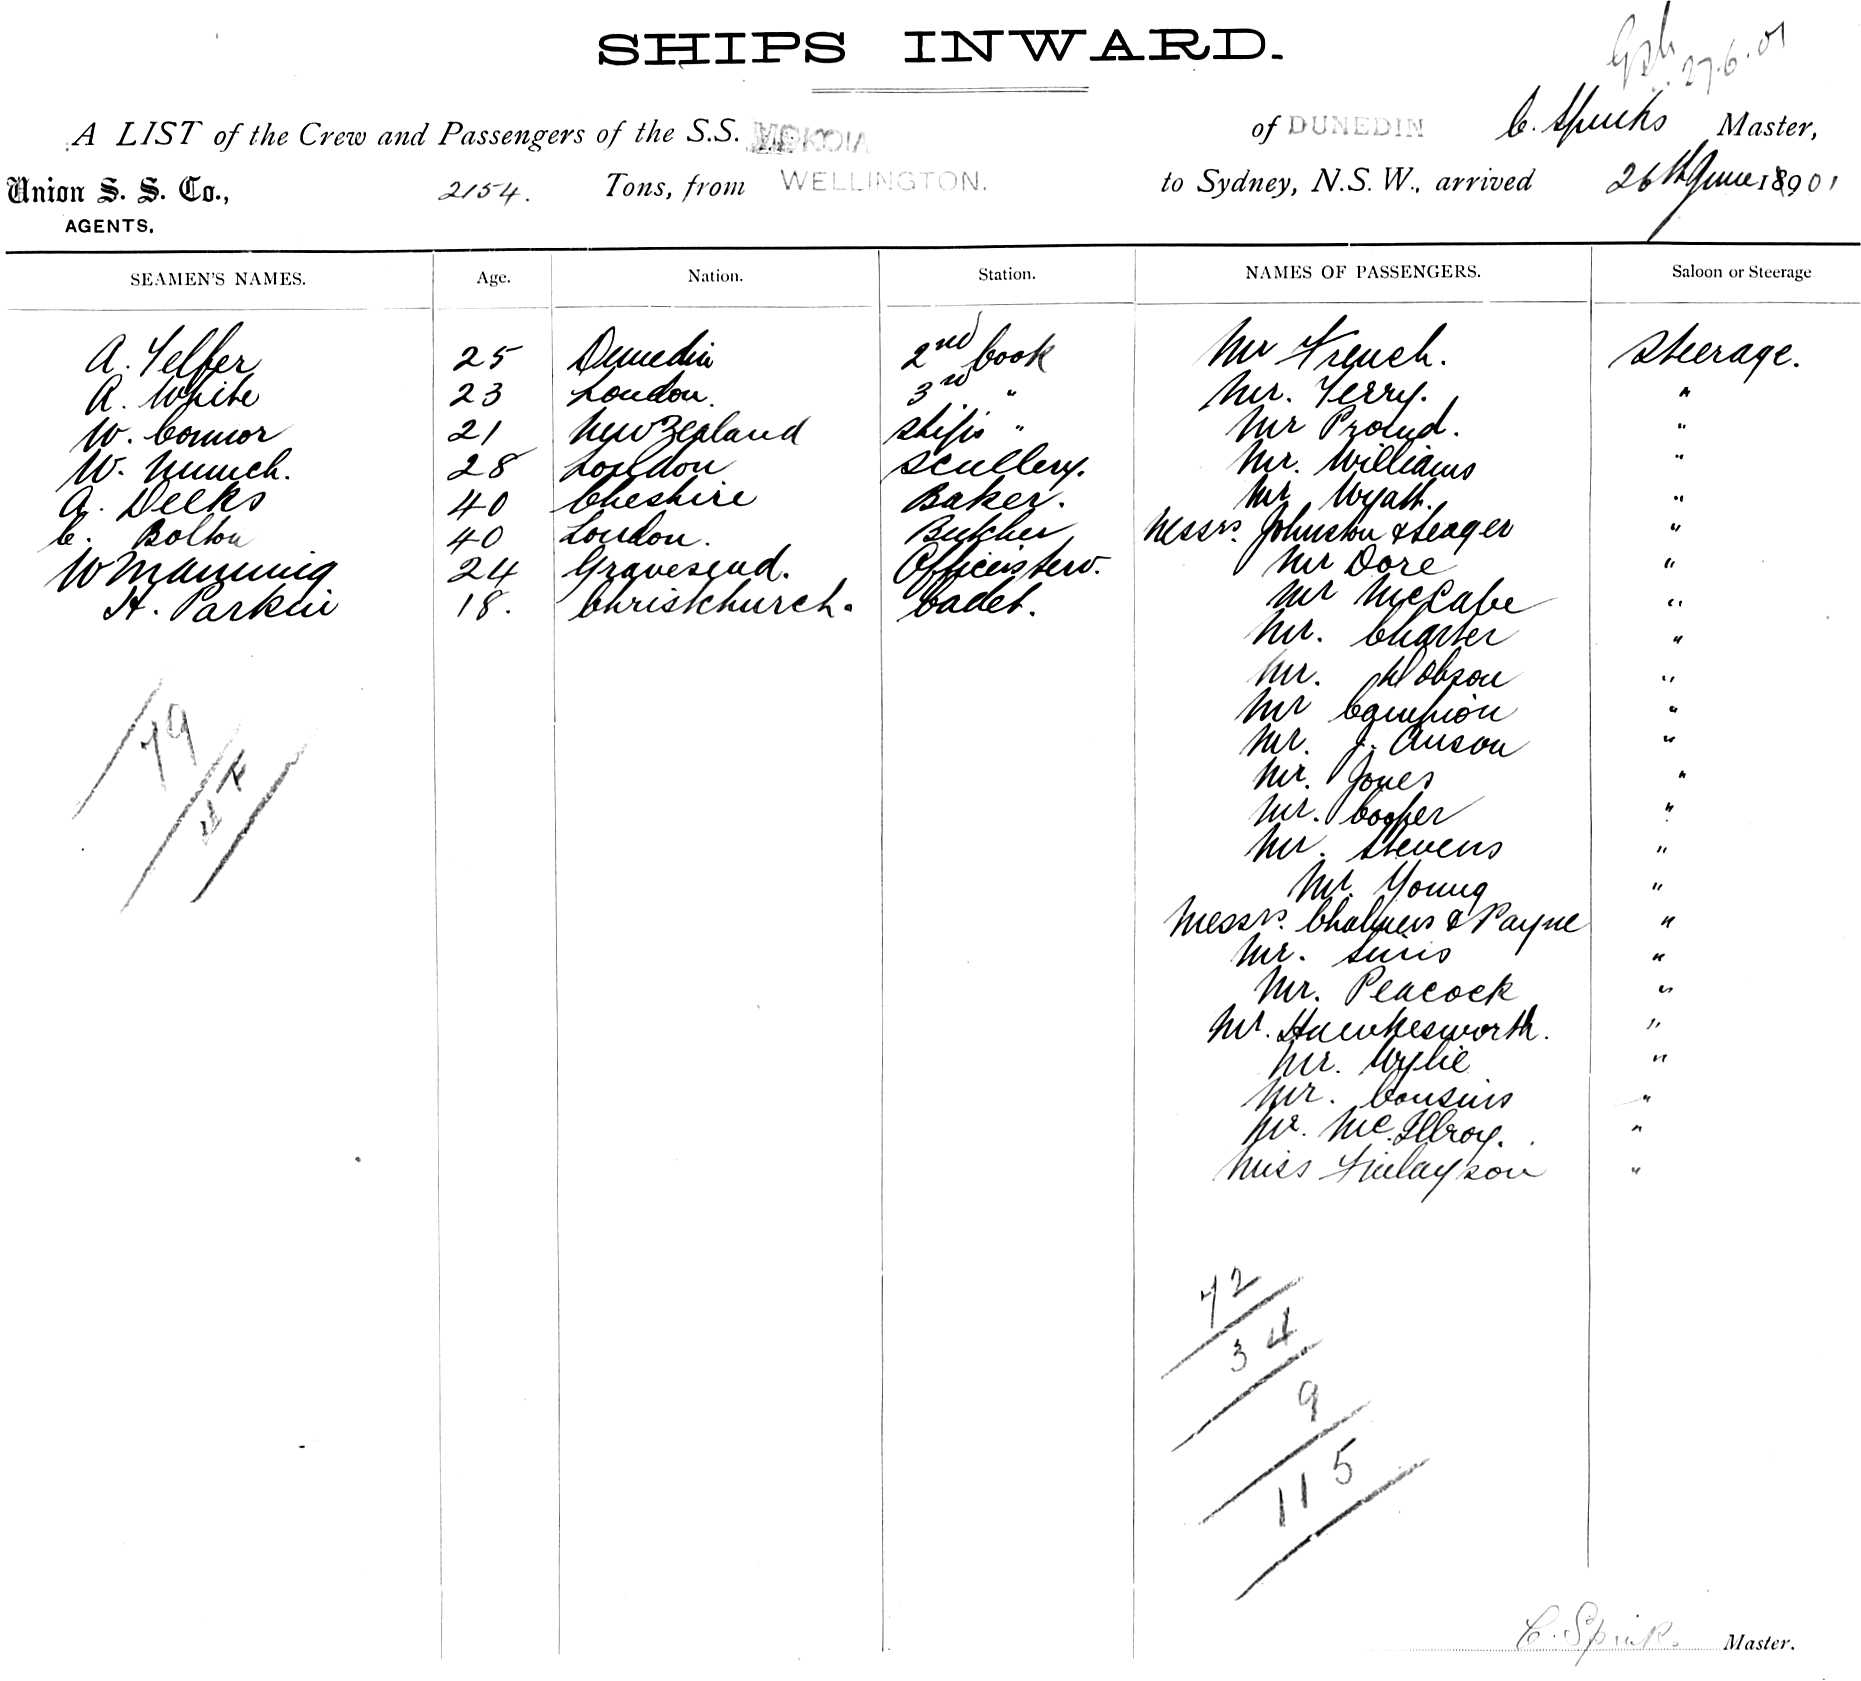 SHIPS INWARD.
27.6.01
A LIST of the Crew and Passengers of the S.S. MOKOIA of DUNEDIN C. Spinks Master,
Union S. S. Co., 2154. Tons, from WELLINGTON. to Sydney, N.S.W., arrived 26th June 18901
AGENTS.
SEAMEN'S NAMES. Age. Nation. Station. NAMES OF PASSENGERS. Saloon or Steerage
A. Telfer 25 Dunedin 2nd Cook Mr French. Steerage.
A. White 23 London. 3rd " Mr. Terry. "
W. Connor 21 New Zealand Ship's " Mr Proud. "
W. Munich. 28 London Scullery. Mr. Williams "
A. Deeks 40 Cheshire Baker. Mr Wyatt. "
C. Bolton 40 London. Butcher Messrs. Johnston & Seager "
W Manning 24 Gravesend. Officers Stew. Mr Dore "
H. Parkin 18. Christchurch. Cadet. Mr McCabe "
Mr. Charter "
Mr. Hobson "
Mr Campion "
Mr. J. Anson "
Mr. Jones "
Mr. Cooper "
Mr. Stevens "
Mr. Young "
Messrs. Chalmers & Payne "
Mr. Sims "
Mr. Peacock "
Mr. Hawkesworth. "
Mr. Wylie "
Mr. Cousins "
Mr. McIlroy. "
Miss Finlayson "
79
72
34
9
115
C. Spinks Master.